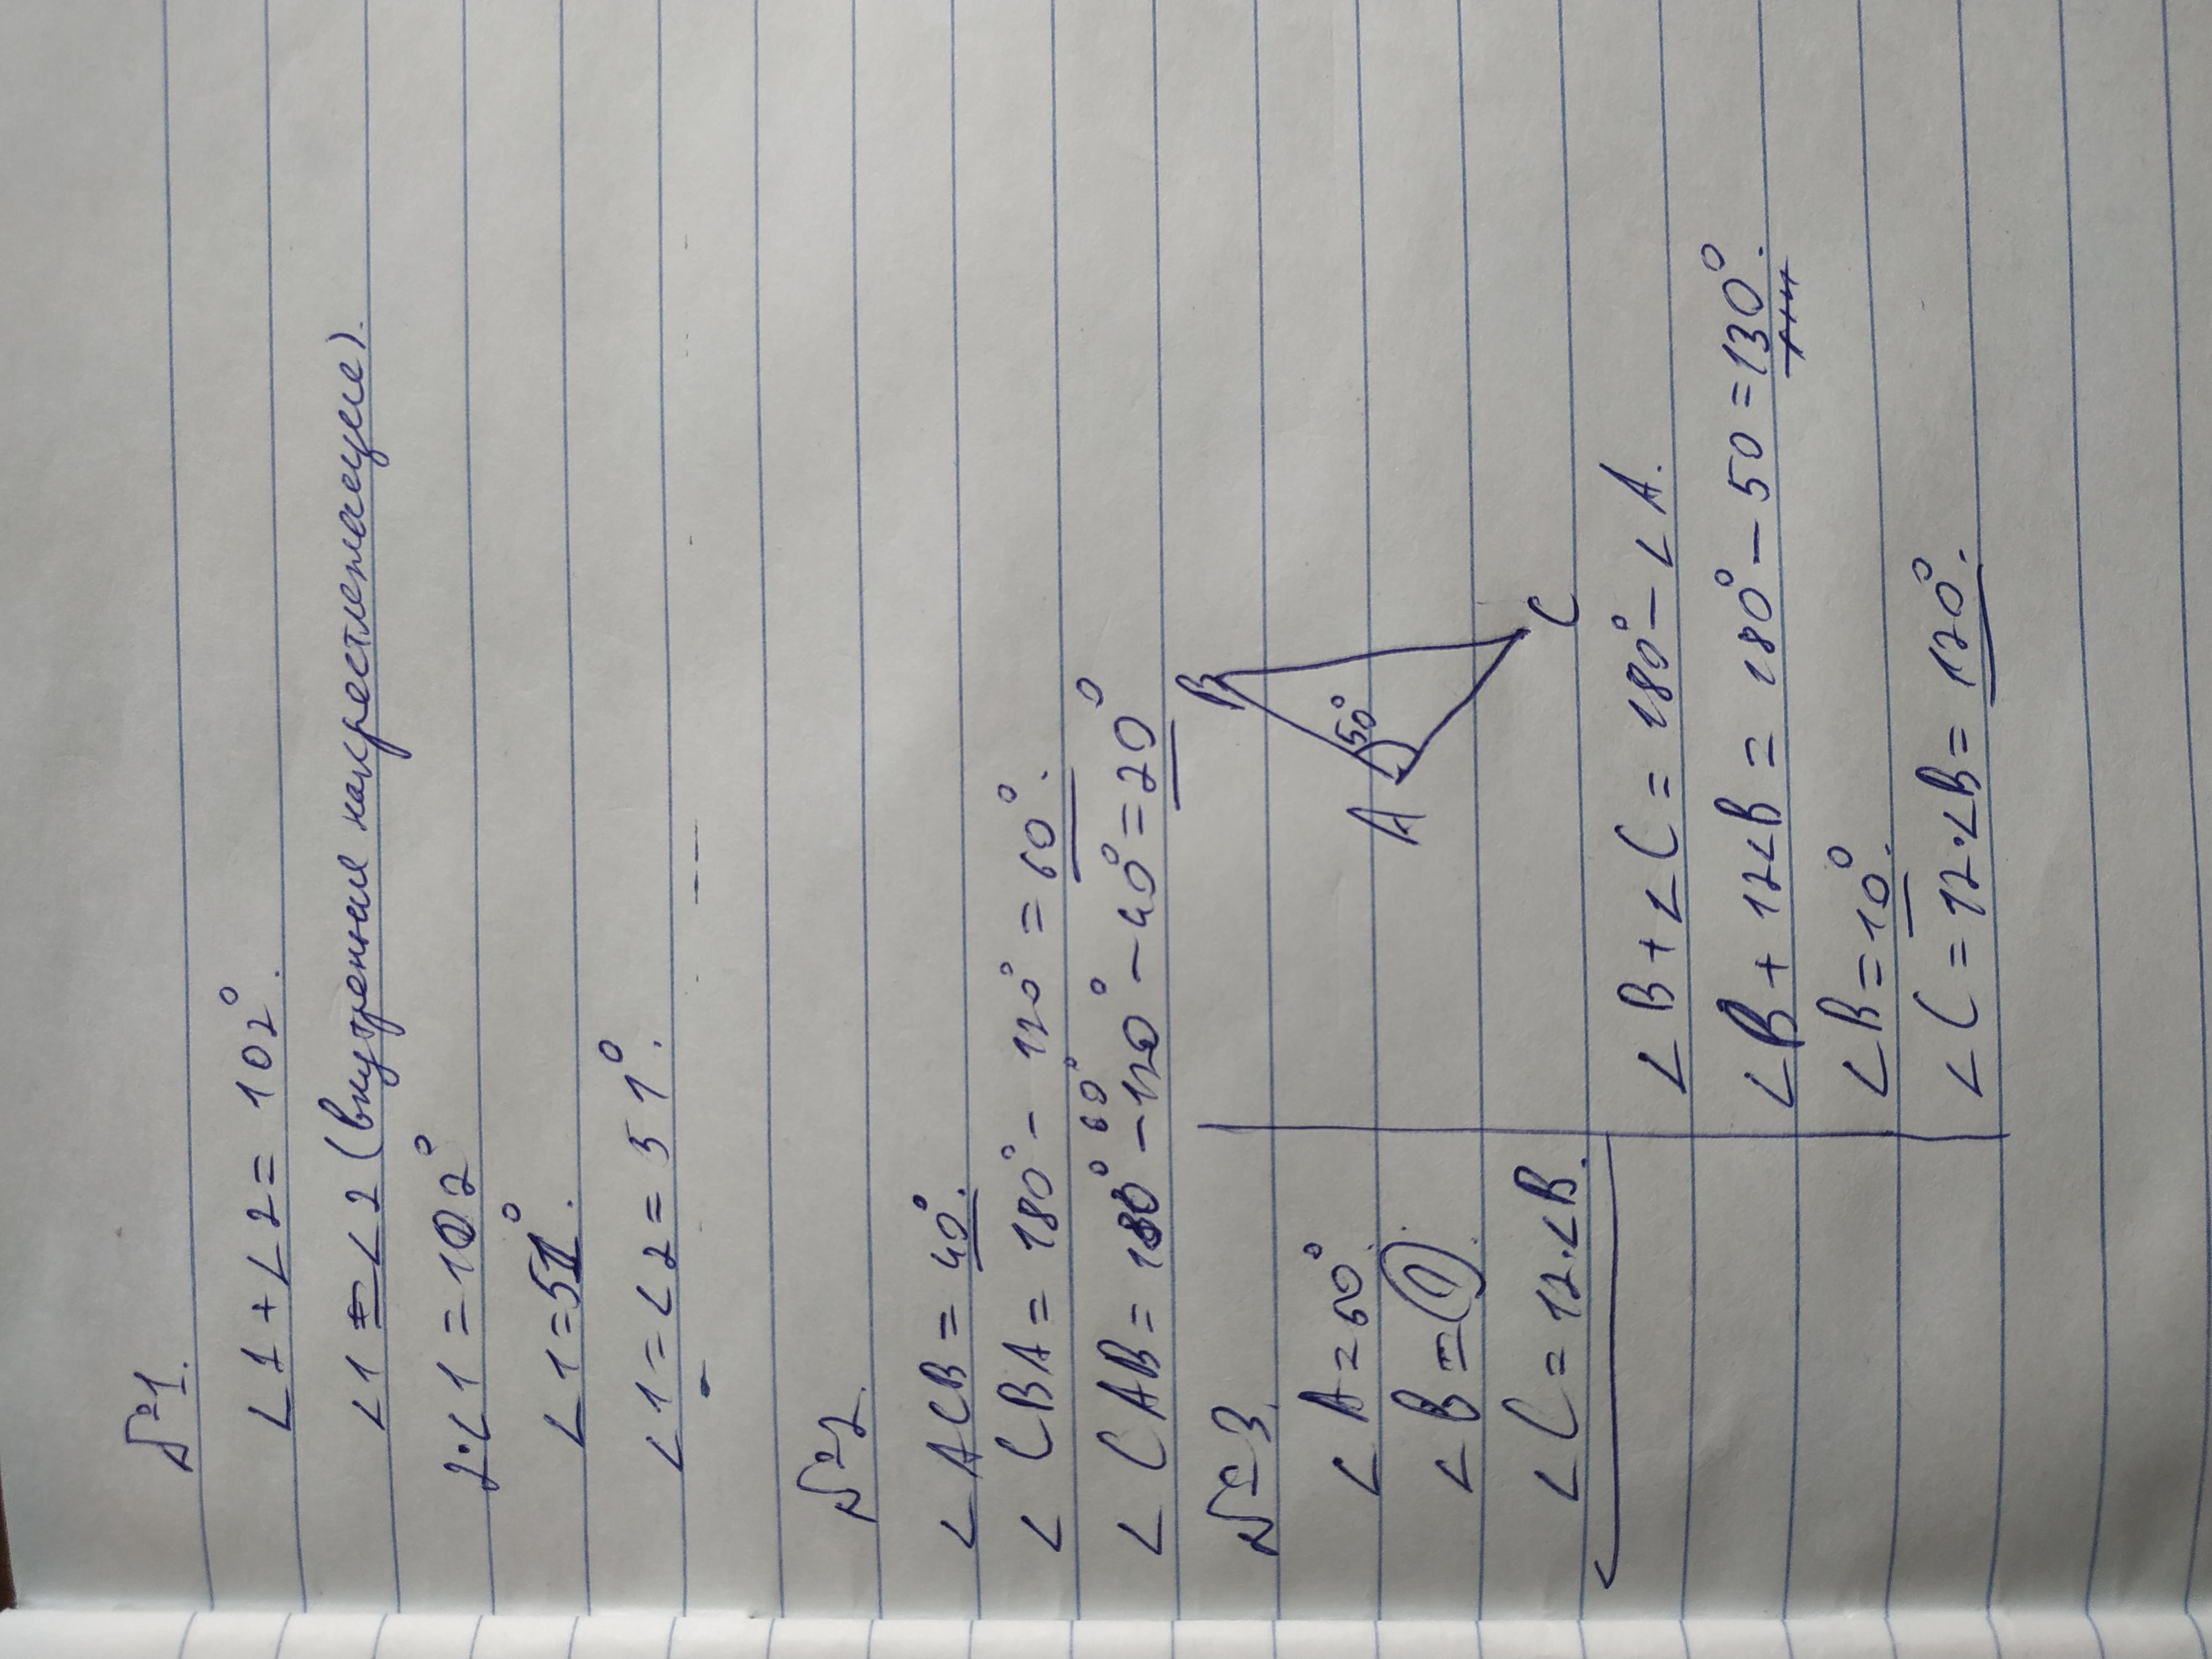 №1.
∠1+∠2=102°.
∠1=∠2 (внутренние накрестлежащие).
2·∠1=102°
∠1=51°.
∠1=∠2=51°.
№2.
∠ACB=40°.
∠CBA=180°-120°=60°.
∠CAB=180°-60°-40°=20°
№3.
∠A=50°.
∠B=?.
∠C=12·∠B.
B
50°
A
C
∠B+∠C=180°-∠A.
∠B+12∠B=180°-50=130°.
∠B=10°.
∠C=12·∠B=120°.